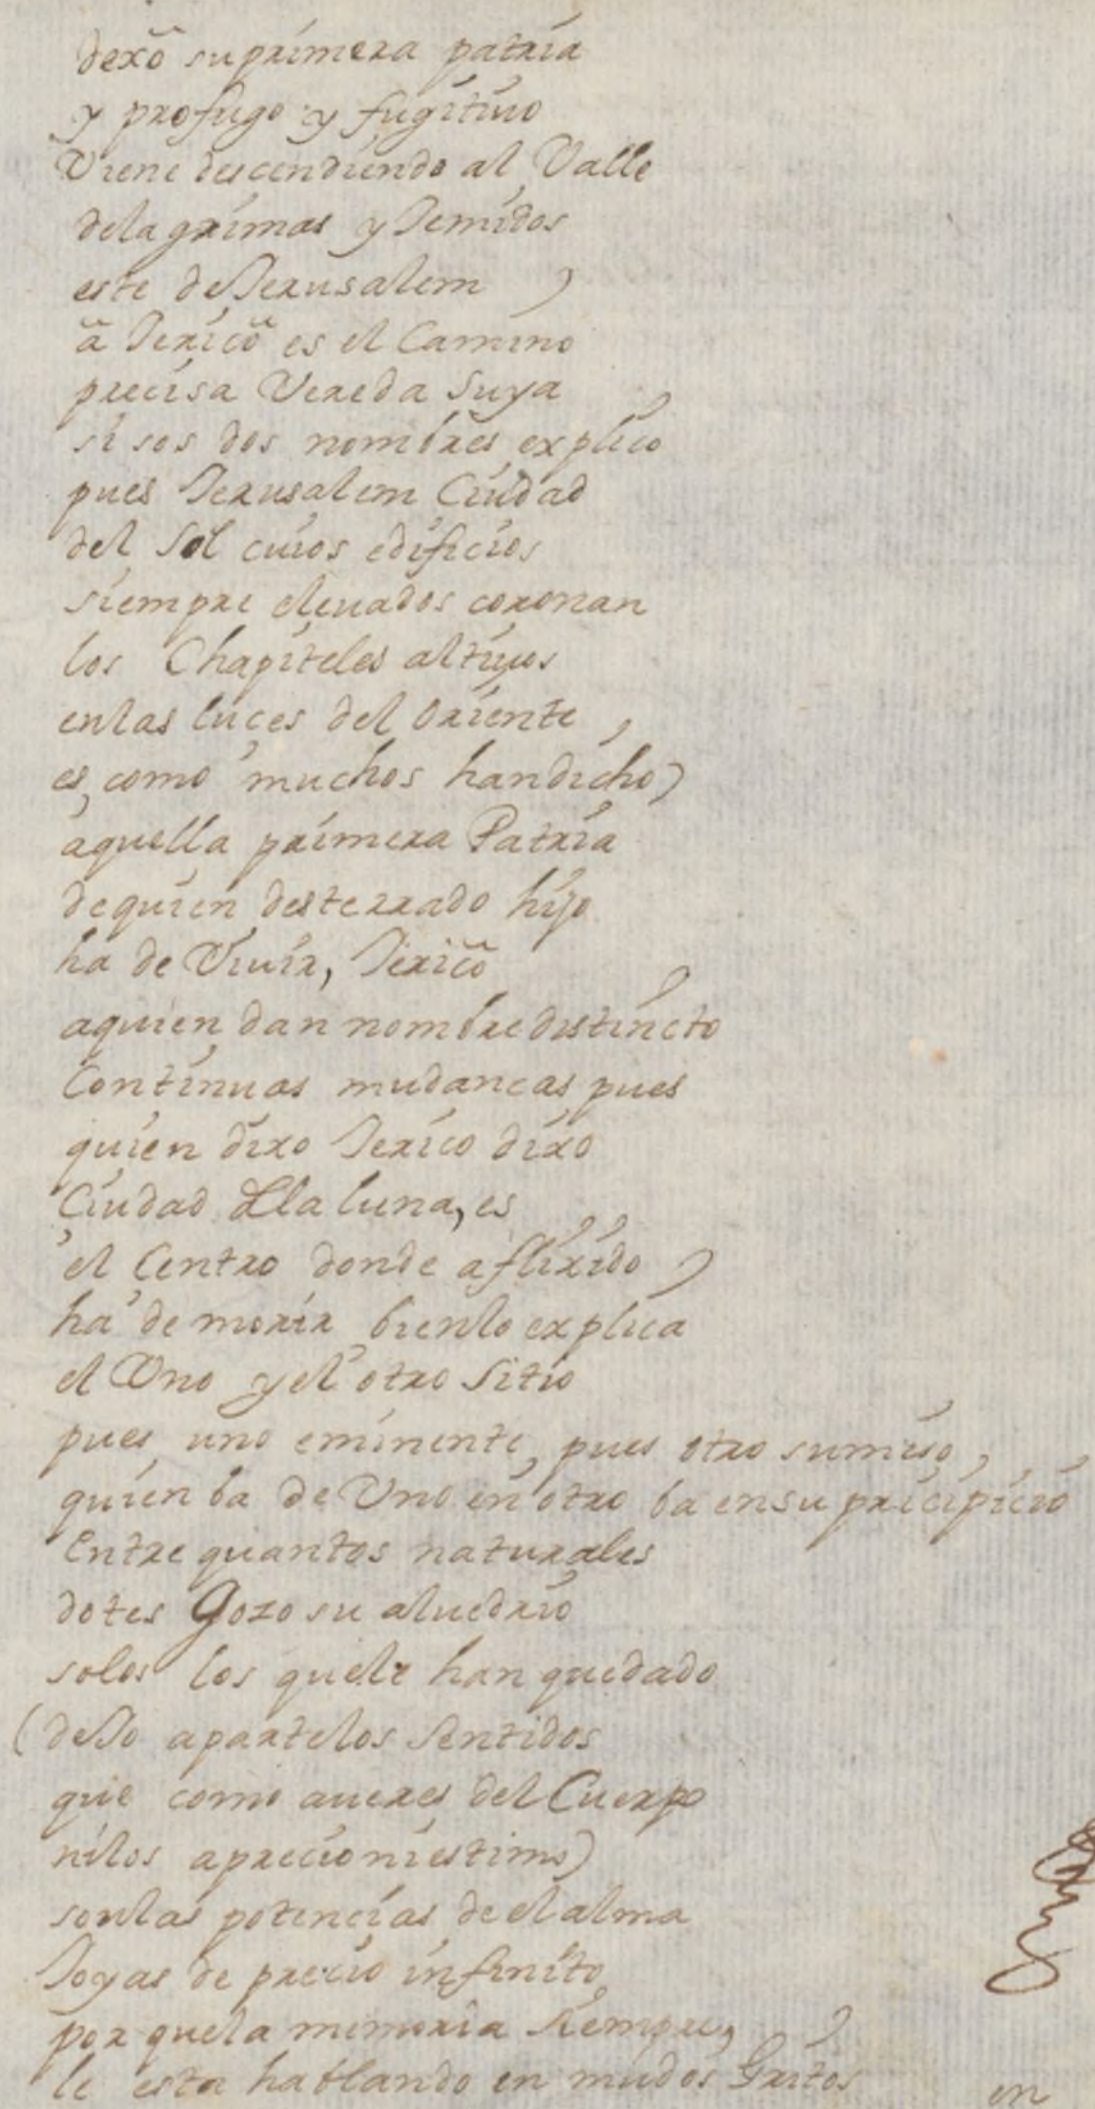 dexo su primera patria
y profugo y fugitiuo
Viene descendiendo al Valle
delagrimas y Jemidos
este de Jerusalem
a Jerico es el Camino
precisa Vereda Suya
si sos dos nombres explico
pues Jerusalem Ciudad
del Sol cuios edificios
siempre eleuados coronan
los Chapiteles altiuos
enlas luces del Oriente,
es, como muchos handicho)
aquella primera Patria
dequien desterrado hijo
ha de Viuir, Jerico
aquien dan nombre distincto
Continuas mudancas pues
quien dixo Jerico dixo
Ciudad Dla luna, es
el Centro donde aflixido
ha de morir bienlo explica
el Vno y el otro Sitio
pues uno eminente, pues otro sumiso,
quien ba de Vno en otro ba ensu pricipicio
Entre quantos naturales
dotes Gozo su aluedrio
solos los quele han quedado
(dejo apartelos Sentidos
que como aueres del Cuerpo
nilos aprecio niestimo)
sonlas potencias de el alma
Joyas de precio infinito
por quela memoria siempre,
le esta hablando en mudos Gritos
en